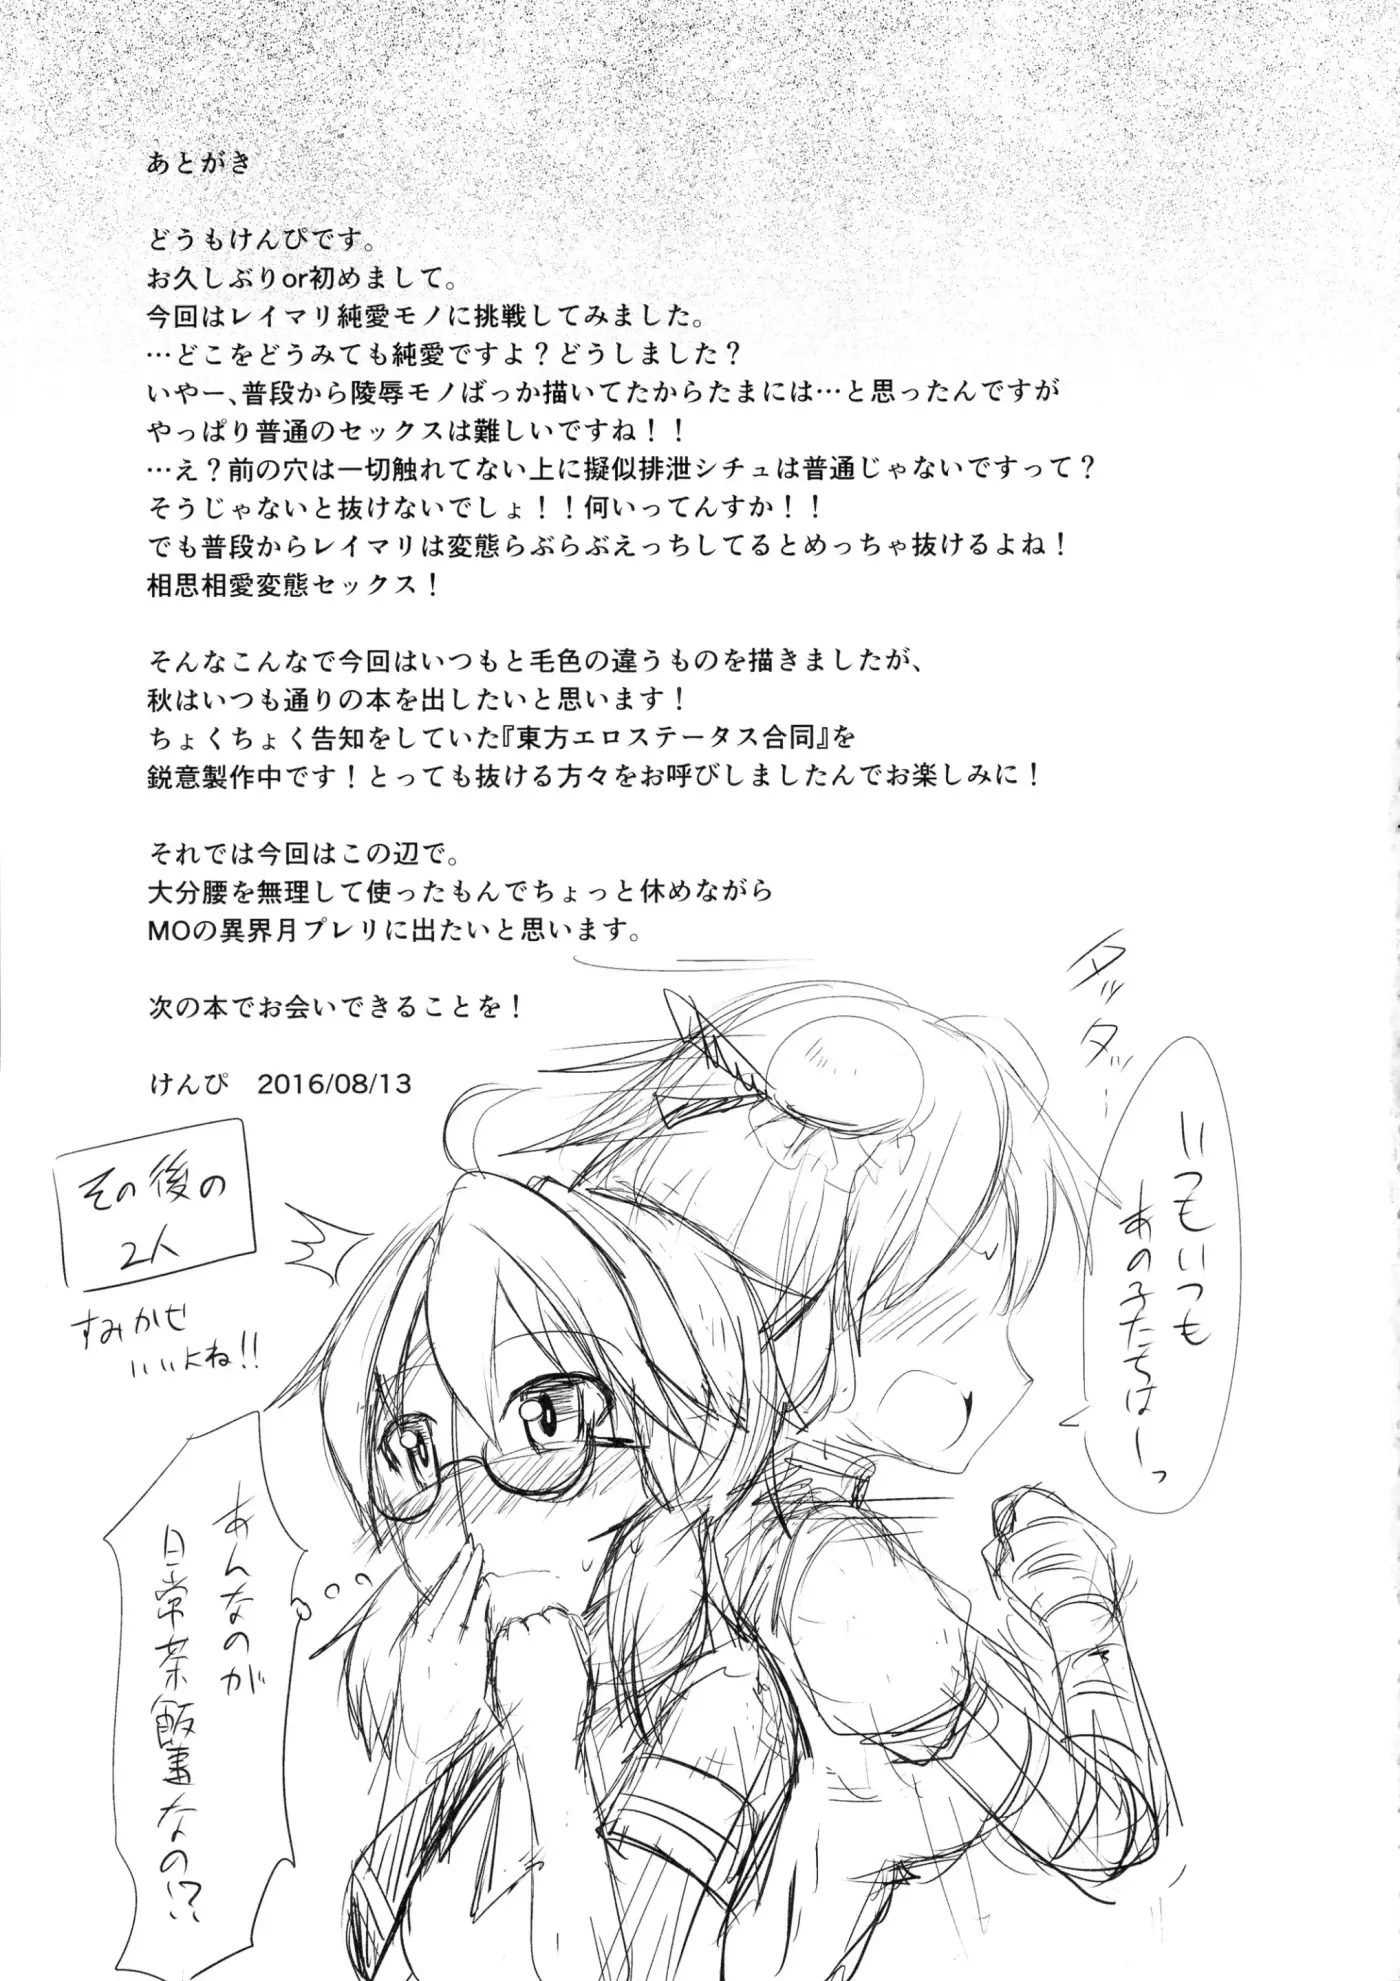 あとがき
どうもけんぴです。
お久しぶりor初めまして。
今回はレイマリ純愛モノに挑戦してみました。
…どこをどうみても純愛ですよ？どうしました？
いやー、普段から陵辱モノばっか描いてたからたまには…と思ったんですが
やっぱり普通のセックスは難しいですね！！
…え？前の穴は一切触れてない上に擬似排泄シチュは普通じゃないですって？
そうじゃないと抜けないでしょ！！何いってんすか！！
でも普段からレイマリは変態らぶらぶえっちしてるとめっちゃ抜けるよね！
相思相愛変態セックス！
そんなこんなで今回はいつもと毛色の違うものを描きましたが、
秋はいつも通りの本を出したいと思います！
ちょくちょく告知をしていた『東方エロステータス合同』を
鋭意製作中です！とっても抜ける方々をお呼びしましたんでお楽しみに！
それでは今回はこの辺で。
大分腰を無理して使ったもんでちょっと休めながら
MOの異界月プレリに出たいと思います。
次の本でお会いできることを！
けんぴ　2016/08/13
タッタッ
いつもいつも
あの子たちはーっ
その後の
2人
すみかせ
いいよね!!
あんなのが
日常茶飯事なの!?